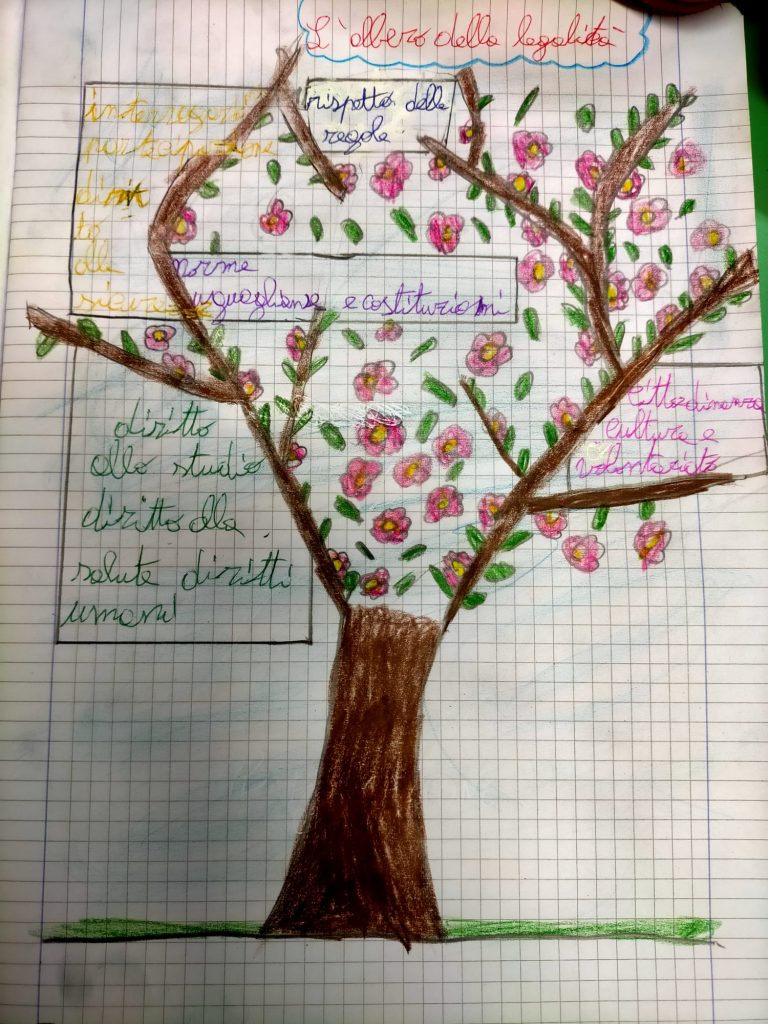 L'albero della legalità
rispetto delle
regole
interrogoni
partecipazione
dirit
to
alla
sicurezza
norme
uguaglianse e costituzioni
cittadinanza
cultura e
volontariato
diritto
allo studio
diritto alla
salute diritti
umani